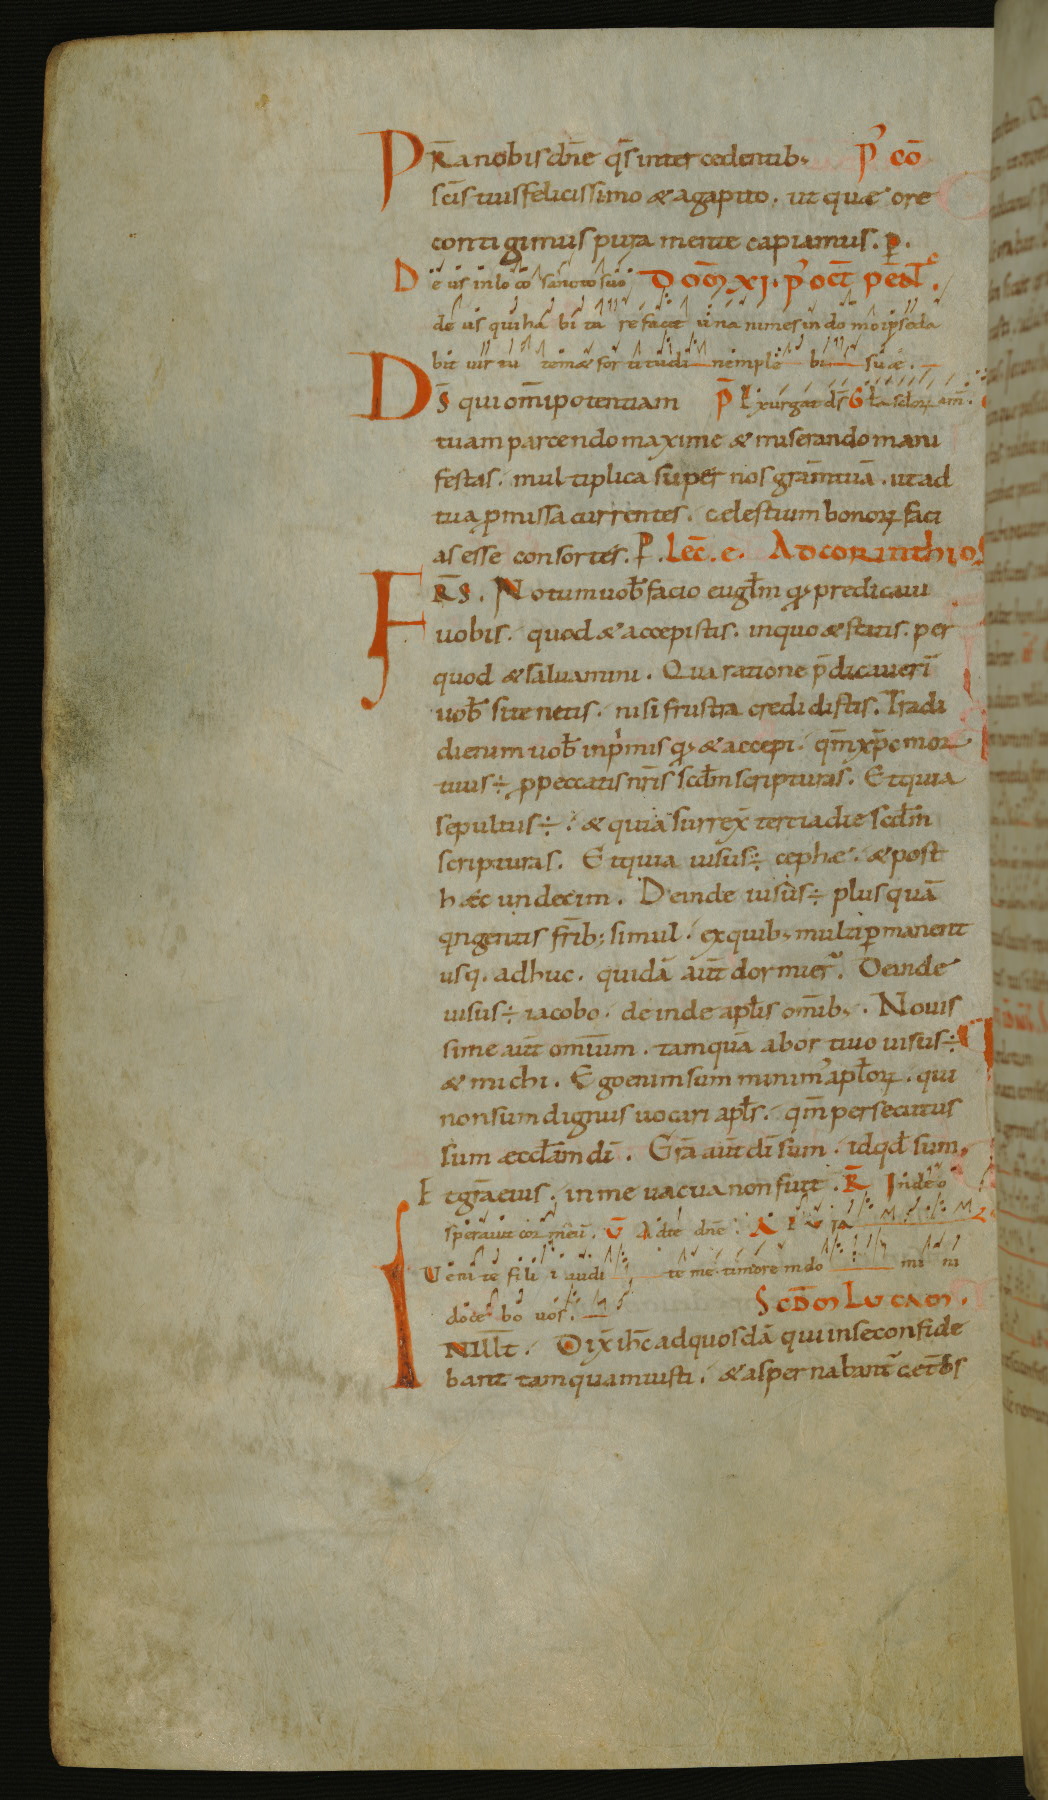 PR̄a nobis dn̄e qs̄ intercedentib; P' CŌ
sc̄is tuis felicissimo & agapito . ut quae ore
contigimus pura mente capiamus . p̄.
Deus in loco sancto suo DOM̄ XI . P' OCT̄ PENT̄.
deus qui habitare facit unanimes in domo ipse da
bit uirtutem & fortitudinem plebi suae .
DS̄ qui om̄ipotentiam P̄ Exurgat ds̄ Gl̄a sclor̄ am̄.
tuam parcendo maxime & miserando mani
festas . multiplica super nos gr̄am tuā . ut ad
tua p̄missa currentes . celestium bonor̄ faci
as esse consortes . P̄. LEC̄. E. AD CORINTHIOS
FR̄S . Notum uob̄ facio eugl̄m q; predicaui
uobis . quod & accepistis . in quo & statis . per
quod & saluamini . Qua ratione p̄dicauerī
uob̄ si tenetis . nisi frustra credidistis . Tradi
di enim uob̄ inp'mis q; & accepi . qm̄ xp̄c mor
tuus ÷ p peccatis nr̄is scd̄m scripturas . Et quia
sepultus ÷ . & quia surrex̄ tertia die scd̄m
scripturas . Et quia uisus ÷ cephe . & post
haec undecim . Deinde uisus ÷ plus quā
qngentis fr̄ib; simul . ex quib; multi p̄manent
usq. adhuc . quidā aūt dormier̄ . Deinde
uisus ÷ iacobo . deinde apl̄is om̄ib; . Nouis
sime aūt omnium . tamquā abortiuo uisus ÷
& michi . Ego enim sum minim' apl̄or̄ . qui
non sum dignus uocari apl̄s . qm̄ persecutus
sum aeccl̄am dī . Gr̄a aūt dī sum . id qd̄ sum .
Et gr̄a eius . in me uacua non fuit . R̄ In deo
sperauit cor meū . V̄ Ad te dn̄e . AEVIA
Venite filii audite me . timorem domini
docebo uos . SCD̄M LUCAM .
IN ILLT̄ . Dix̄ ihc̄ ad quosdā qui in se confide
bant tamquam iusti . & aspernabant' cet̄os